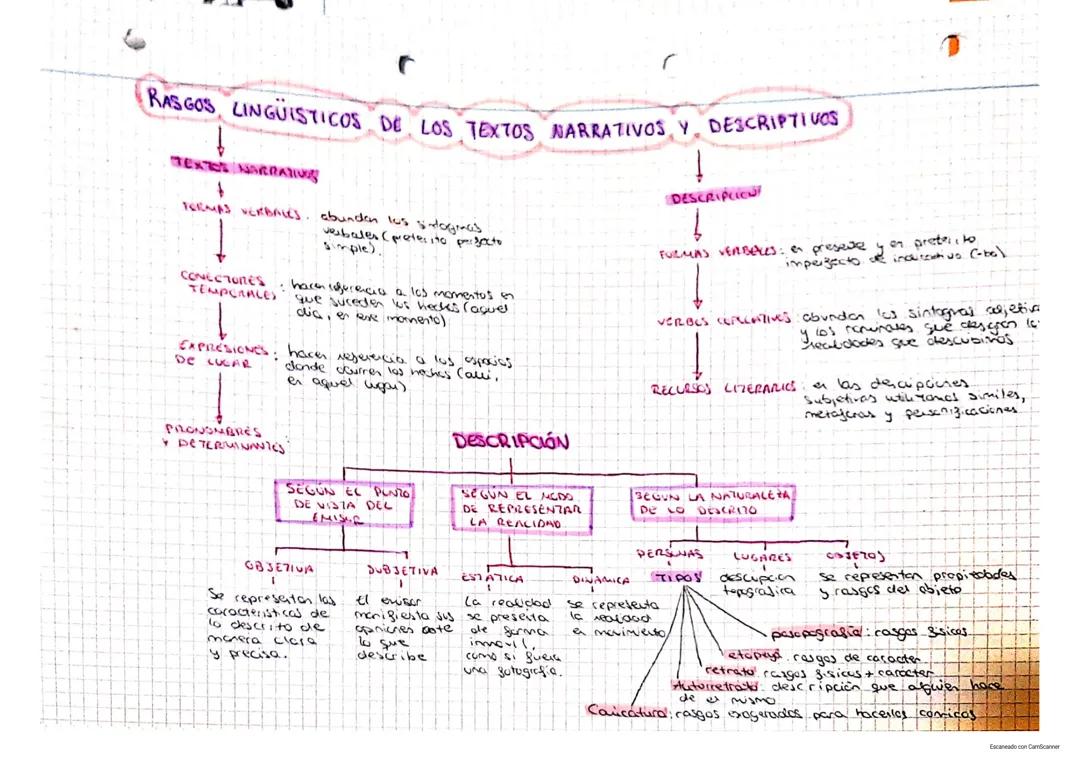 RASGOS LINGÜÍSTICOS DE LOS TEXTOS NARRATIVOS Y DESCRIPTIVOS
TEXTOS NARRATIVOS
FORMAS VERBALES: abundan los sintagmas
verbales (pretérito perfecto
simple).
CONECTORES
TEMPORALES: hacen referencia a los momentos en
que suceden los hechos (aquel
día, en ese momento)
EXPRESIONES
DE LUGAR: hacen referencia a los espacios
donde ocurren los hechos (allí,
en aquel lugar)
PRONOMBRES
Y DETERMINANTES:
DESCRIPCIÓN
FORMAS VERBALES: en presente y en pretérito
imperfecto de indicativo (-ba)
VERBOS COPULATIVOS: abundan los sintagmas adjetiva
y los nominales que designan la
realidades que describimos
RECURSOS LITERARIOS: en las descripciones
subjetivas utilizamos símiles,
metáforas y personificaciones
DESCRIPCIÓN
SEGÚN EL PUNTO
DE VISTA DEL
EMISOR
OBJETIVA
Se representan las
características de
lo descrito de
manera clara
y precisa.
SUBJETIVA
El emisor
manifiesta sus
opiniones ante
lo que
describe
SEGÚN EL MODO
DE REPRESENTAR
LA REALIDAD
ESTÁTICA
La realidad
se presenta
de forma
inmovil,
como si fuera
una fotografía.
DINÁMICA
Se representa
la realidad
en movimiento
SEGÚN LA NATURALEZA
DE LO DESCRITO
PERSONAS
TIPOS
LUGARES
descripción
topografica
OBJETOS
Se representan propiedades
y rasgos del objeto
posopografía: rasgos físicos
etopeya: rasgos de caracter
retrato: rasgos físicos + caracter
Autorretrato: descripción que alguien hace
de el mismo
Caricatura: rasgos exagerados para hacerlos comicos
Escaneado con CamScanner